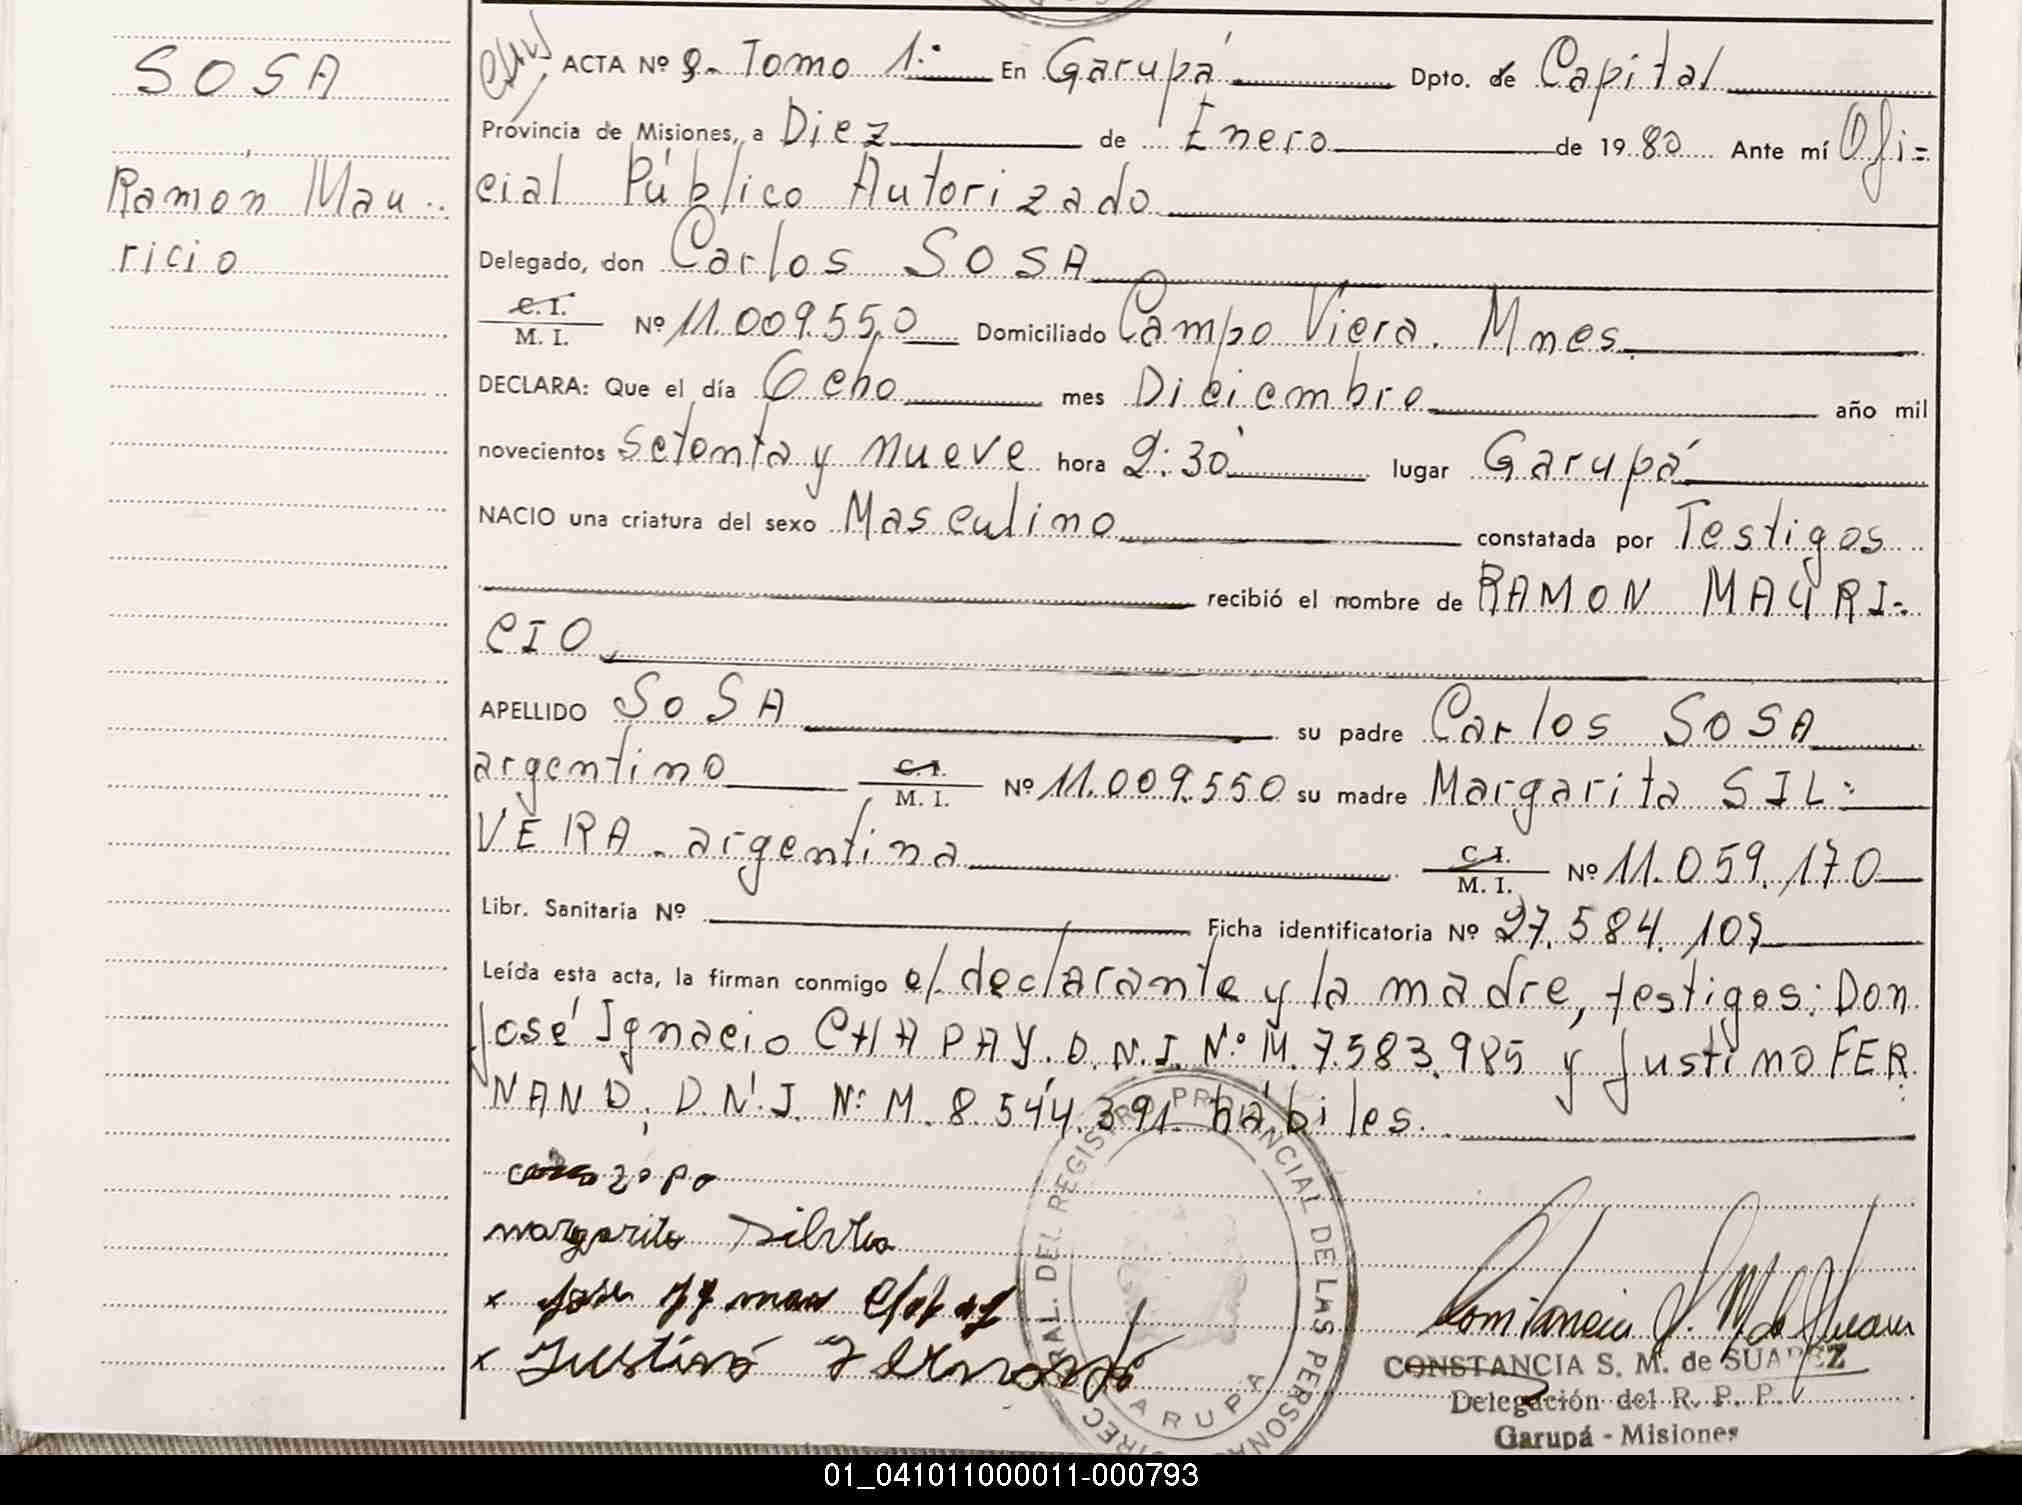 SOSA
Ramón Mau..
ricio
ACTA Nº 9.- Tomo 1.: En Garupá Dpto. de Capital
Provincia de Misiones, a Diez de Enero de 1980 Ante mí Ofi=
cial Público Autorizado
Delegado, don Carlos SOSA
C. I.
M. I. Nº 11.009.550 Domiciliado Campo Viera. Mnes.
DECLARA: Que el día Ocho mes Diciembre año mil
novecientos setenta y nueve hora 2:30 lugar Garupá
NACIO una criatura del sexo Masculino constatada por Testigos
recibió el nombre de RAMON MAURI-
CIO
APELLIDO SOSA su padre Carlos SOSA
argentino C. I. M. I. Nº 11.009.550 su madre Margarita SIL=
VERA - argentina C. I. M. I. Nº 11.059.170
Libr. Sanitaria Nº Ficha identificatoria Nº 27.584.107
Leída esta acta, la firman conmigo el declarante y la madre, testigos: Don
José Ignacio CHAPAY. D.N.I. Nº M. 7.583.985 y Justino FER
NAND, D.N.I. Nº M. 8.544.391 hábiles.
margarita Silvera
x Jose
x Justino
REGISTRO PROVINCIAL DE LAS PERSONAS
GARUPA
CONSTANCIA S. M. de SUAREZ
Delegación del R. P. P.
Garupá - Misiones
01_041011000011-000793